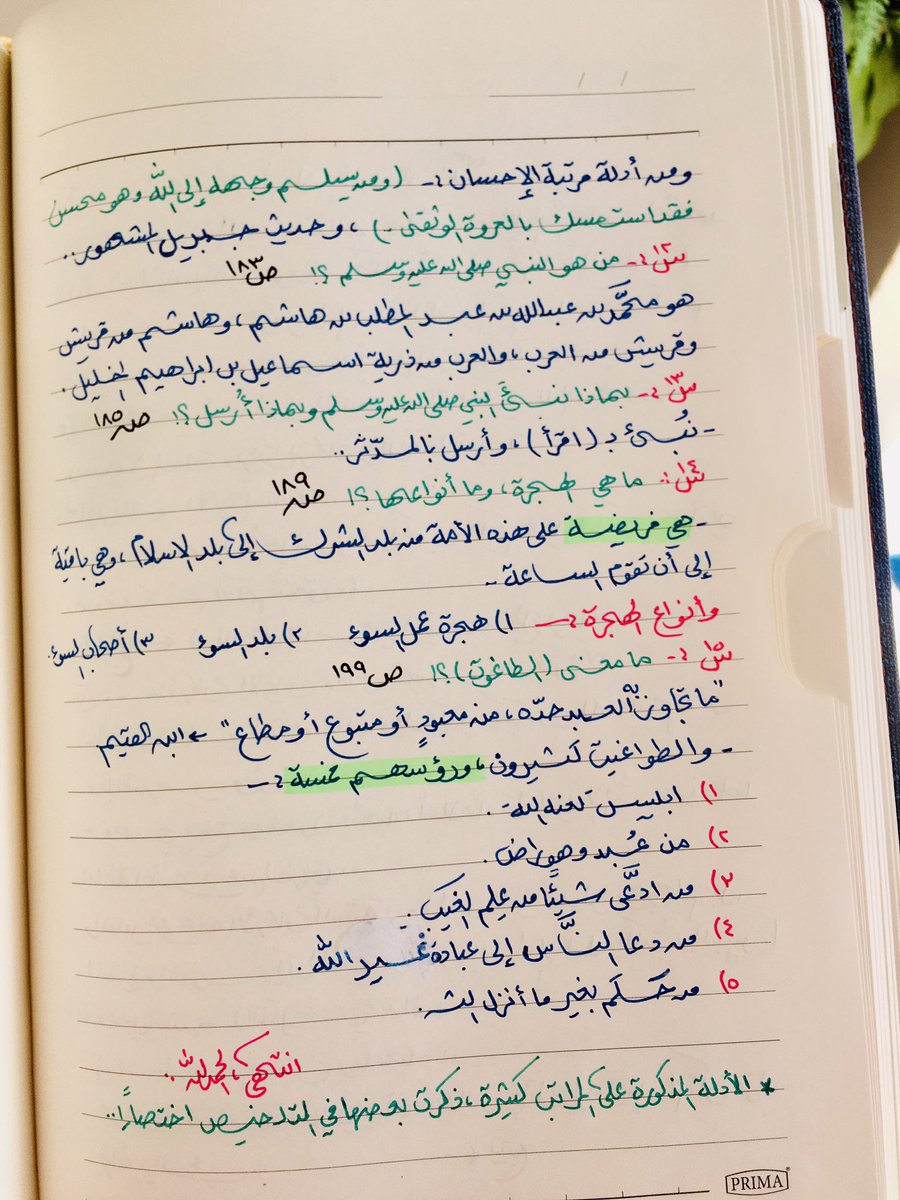 / /
ومن أدلة مرتبة الإحسان :- (ومن يسلم وجهه إلى الله وهو محسن
فقد استمسك بالعروة الوثقى..) ، وحديث جبريل المشهور..
س١٢ :- من هو النبي صلى الله عليه وسلم ؟! ص١٨٣
هو محمَّد بن عبدالله بن عبد المطلب بن هاشم ، وهاشم من قريش
وقريش من العرب ، والعرب من ذرية اسماعيل بن ابراهيم الخليل .
س١٣ :- بماذا نبئ النبي صلى الله عليه وسلم وبماذا أُرسل ؟! ص١٨٥
- نُبئ بـ (اقرأ) ، وأرسل بالمدّثر..
س١٤ :- ما هي الهجرة ، وما أنواعها ؟! ص١٨٩
- هي فريضة على هذه الأمة من بلد الشرك إلى بلد الاسلام ، وهي باقية
إلى أن تقوم الساعة -
وأنواع الهجرة :- ١) هجرة عمل السوء ٢) بلد السوء ٣) أصحاب السوء.
س١٥ :- ما معنى (الطاغوت) ؟! ص١٩٩
"ما تجاوز به العبد حدّه ، من معبودٍ أو متبوع أو مطاع" ← ابن القيم
- والطواغيت كثيرون ، ورؤسهم خمسة :-
١) ابليس لعنه الله .
٢) من عُبد وهو راضٍ .
٣) من ادَّعى شيئًا من علم الغيب .
٤) من دعا النَّاس إلى عبادة غير الله .
٥) من حكم بغير ما أنزل الله .
انتهى ، الحمدلله..
* الأدلة المذكورة على المراتب كثيرة ، ذكرت بعضها في التلخيص اختصارًا..
PRIMA®